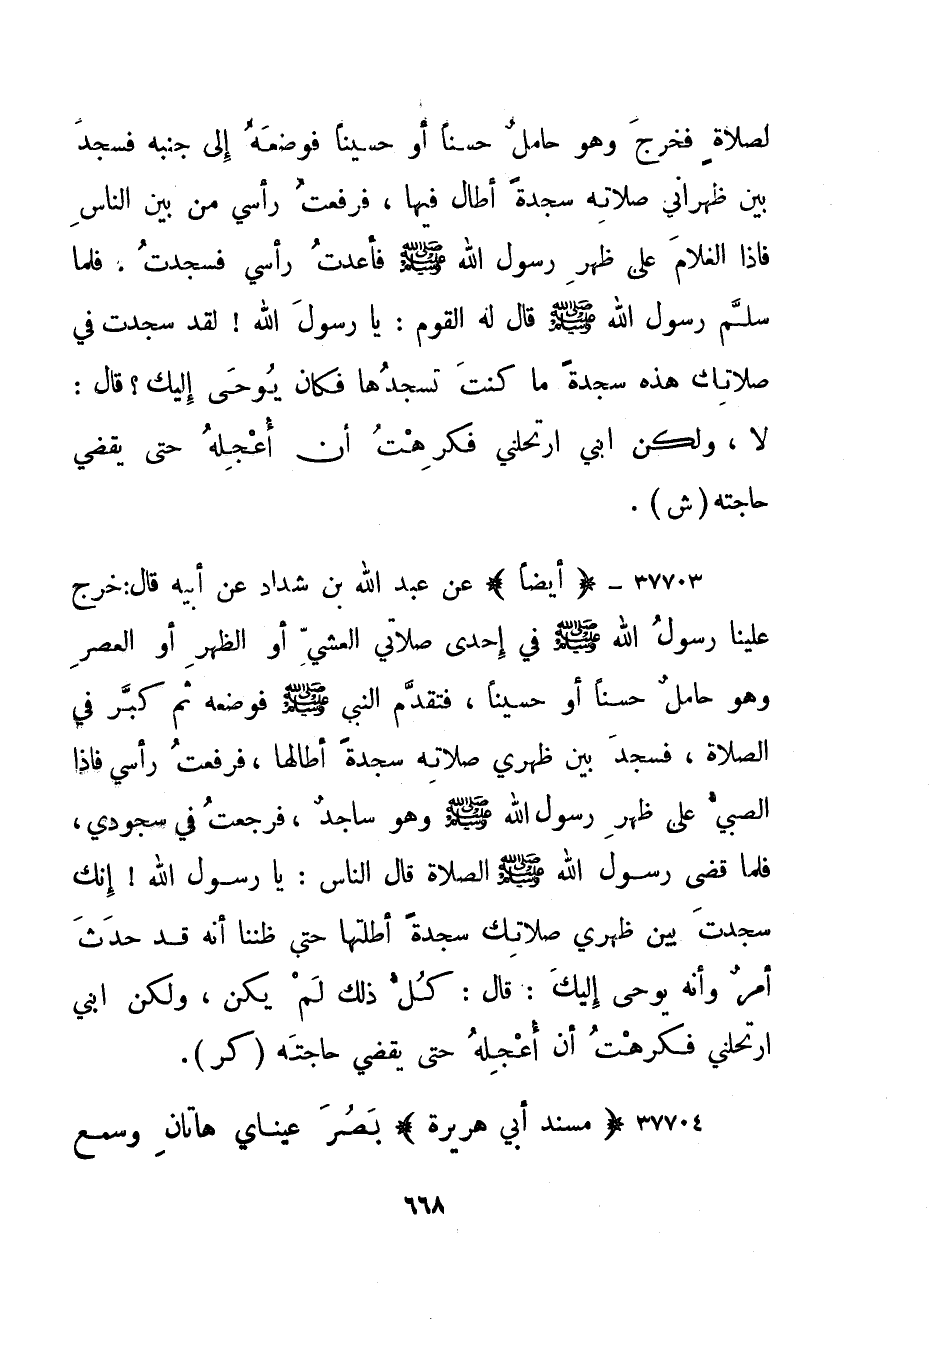 لصلاةٍ فخرجَ وهو حاملٌ حسناً أو حسيناً فوضعَهُ إلى جنبه فسجدَ
بين ظهرانَي صلاتِه سجدةً أطال فيها ، فرفعتُ رأسي من بين الناسِ
فاذا الغلامَ على ظهرِ رسول الله ﷺ فأعدتُ رأسي فسجدتُ . فلما
سلَّم رسول الله ﷺ قال له القوم : يا رسولَ الله ! لقد سجدت في
صلاتِك هذه سجدةً ما كنتَ تسجدُها فكان يُوحَى إليك ؟ قال :
لا ، ولكن ابني ارتحلني فكرِهْتُ أن أُعْجِلهُ حتى يقضي
حاجته (ش) .
٣٧٧٠٣ ـ ﴿ أيضاً ﴾ عن عبد الله بن شداد عن أبيه قال : خرج
علينا رسولُ الله ﷺ في إحدى صلاتَي العشيِّ أو الظهرِ أو العصرِ
وهو حاملٌ حسناً أو حسيناً ، فتقدَّم النبي ﷺ فوضعه ثم كبَّر في
الصلاة ، فسجدَ بين ظهري صلاتِه سجدةً أطالها ، فرفعتُ رأسي فاذا
الصبيُّ على ظهرِ رسول الله ﷺ وهو ساجدٌ ، فرجعتُ في سجودي ،
فلما قضى رسول الله ﷺ الصلاة قال الناس : يا رسول الله ! إنك
سجدتَ بين ظهري صلاتِك سجدةً أطلتها حتى ظننا أنه قد حدَثَ
أمرٌ وأنه يوحى إليكَ : قال : كُلُّ ذلك لَمْ يكن ، ولكن ابني
ارتحلني فكرهْتُ أن أُعْجِلهُ حتى يقضي حاجتَه (كر) .
٣٧٧٠٤ ﴿ مسند أبي هريرة ﴾ بَصُرَ عيناي هاتانِ وسمع
٦٦٨